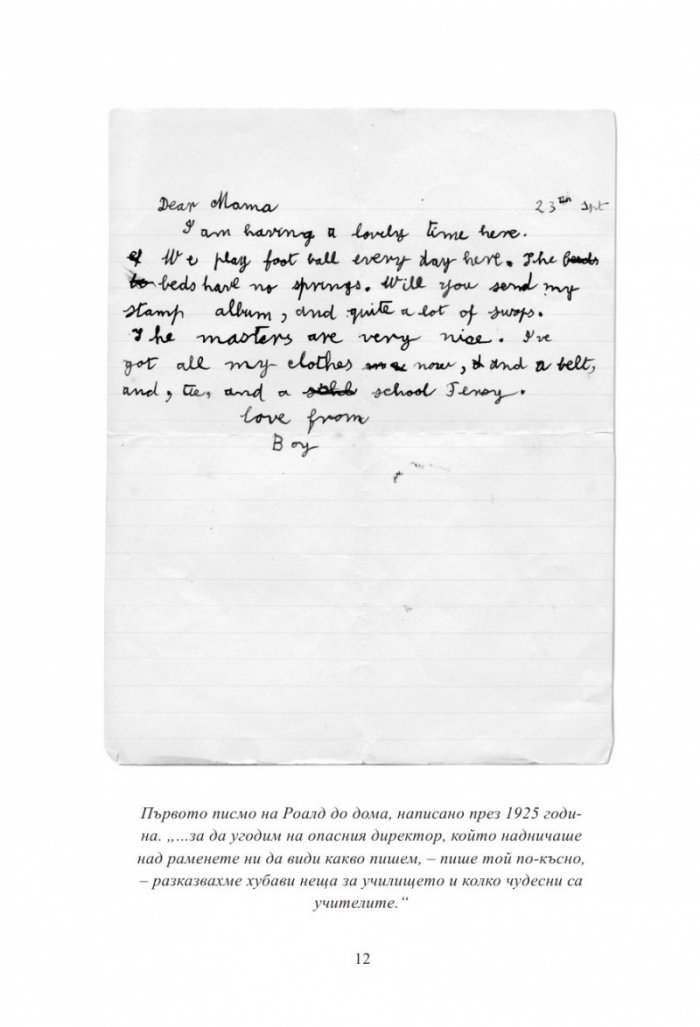 Dear Mama 23th Spt
I am having a lovely time here.
We play foot ball every day here. The
beds have no springs. Will you send my
stamp album, and quite a lot of swops.
The masters are very nice. I've
got all my clothes now, and a belt,
and, tie, and a school Jersy.
love from
Boy
Първото писмо на Роалд до дома, написано през 1925 годи-
на. „...за да угодим на опасния директор, който надничаше
над раменете ни да види какво пишем, – пише той по-късно,
– разказвахме хубави неща за училището и колко чудесни са
учителите.“
12